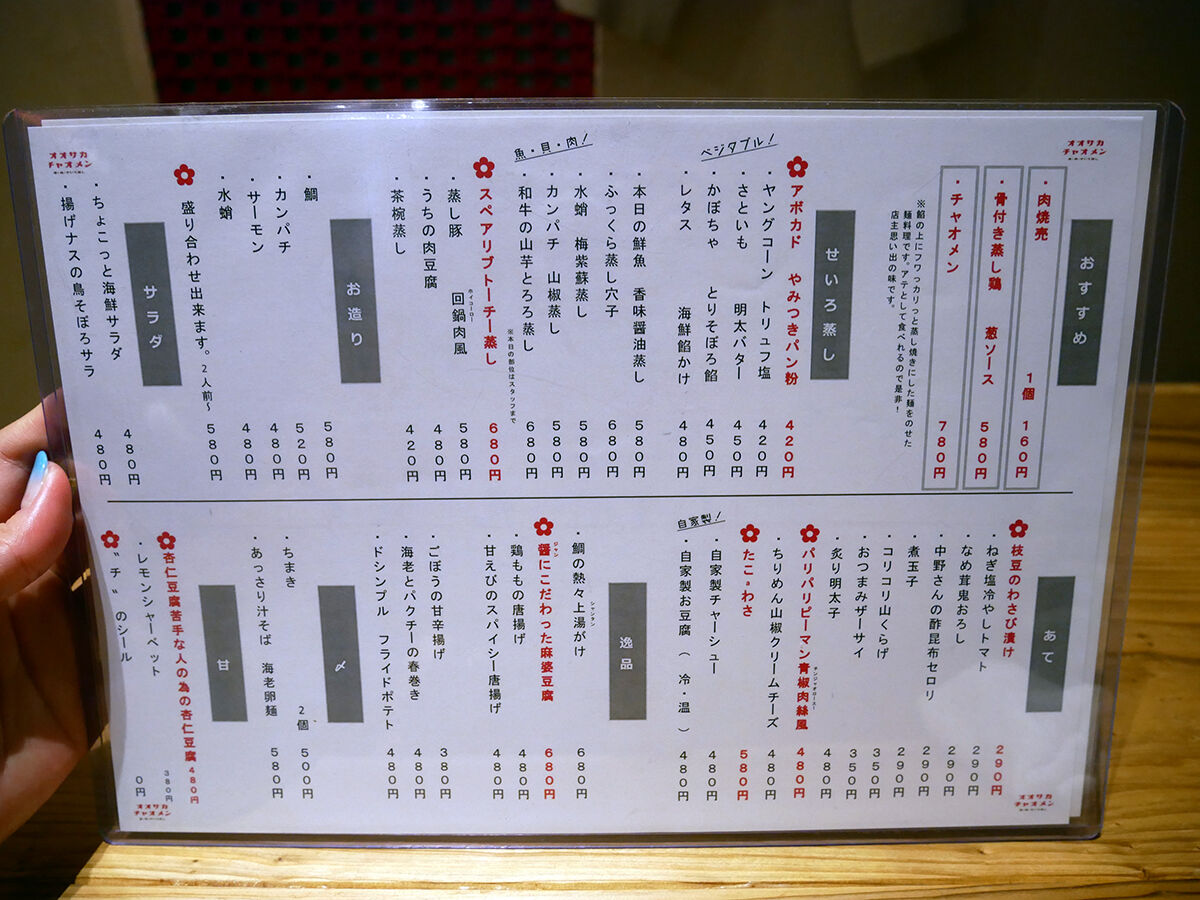 オオサカ
チャオメン
おすすめ
・肉焼売 1個 160円
・骨付き蒸し鶏 葱ソース 580円
・チャオメン 780円
※餡の上にフワっカリっと蒸し焼きにした麺をのせた
麺料理です。アテとして食べれるので是非！
店主思い出の味です。
せいろ蒸し
ベジタブル！
アボカド やみつきパン粉 420円
・ヤングコーン トリュフ塩 420円
・さといも 明太バター 450円
・かぼちゃ とりそぼろ餡 450円
・レタス 海鮮餡かけ 480円
魚・貝・肉！
・本日の鮮魚 香味醤油蒸し 580円
・ふっくら蒸し穴子 680円
・水蛸 梅紫蘇蒸し 580円
・カンパチ 山椒蒸し 580円
・和牛の山芋とろろ蒸し 680円
スペアリブトーチー蒸し 680円
※本日の部位はスタッフまで
・蒸し豚 回鍋肉風 580円
ホイコーロー
・うちの肉豆腐 480円
・茶椀蒸し 420円
お造り
・鯛 580円
・カンパチ 520円
・サーモン 480円
・水蛸 480円
盛り合わせ出来ます。2人前〜 580円
サラダ
・ちょこっと海鮮サラダ 480円
・揚げナスの鳥そぼろサラ 480円
オオサカ
チャオメン
あて
枝豆のわさび漬け 290円
・ねぎ塩冷やしトマト 290円
・なめ茸鬼おろし 290円
・中野さんの酢昆布セロリ 290円
・煮玉子 290円
・コリコリ山くらげ 350円
・おつまみザーサイ 350円
・炙り明太子 480円
パリパリピーマン青椒肉絲風 480円
チンジャオロース―
・ちりめん山椒クリームチーズ 480円
たこわさ 580円
自家製！
・自家製チャーシュー 480円
・自家製お豆腐（冷・温） 480円
逸品
・鯛の熱々上湯がけ 680円
シャンタン
醤にこだわった麻婆豆腐 680円
ジャン
・鶏ももの唐揚げ 480円
・甘えびのスパイシー唐揚げ 480円
・ごぼうの甘辛揚げ 380円
・海老とパクチーの春巻き 480円
・ドシンプル フライドポテト 480円
〆
・ちまき 2個 500円
・あっさり汁そば 海老卵麺 580円
甘
杏仁豆腐苦手な人の為の杏仁豆腐 480円
・レモンシャーベット 380円
〝チ〟のシール 0円
オオサカ
チャオメン
オオサカ
チャオメン